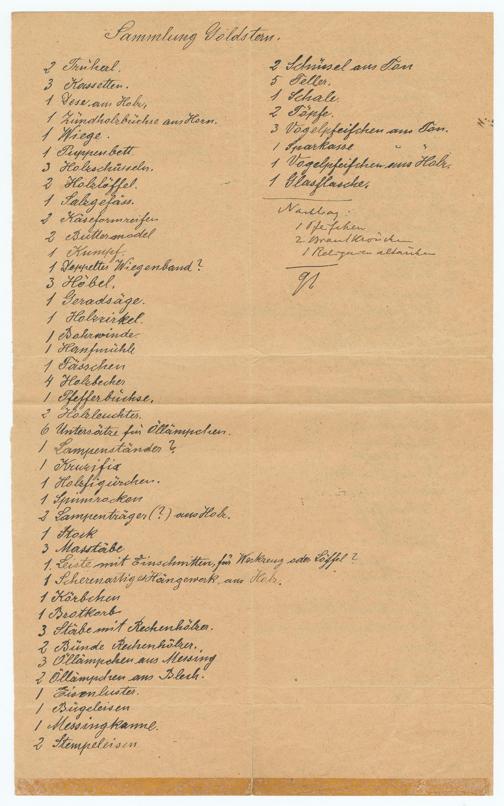 Sammlung Goldstern.
2 Trüherl.
3 Kassetten.
1 Dose aus Holz.
1 Zündholzbüchse aus Horn.
1 Wiege.
1 Puppenbett
3 Holzschüsseln.
2 Holzlöffel.
1 Salzgefäss.
2 Käseformreifen
2 Buttermodel
1 Kumpf.
1 Doppeltes Wiegenband?
3 Hobel.
1 Geradsäge.
1 Holzzirkel.
1 Bohrwinde
1 Hanfmühle
1 Fässchen
4 Holzbecher
1 Pfefferbüchse.
2 Holzleuchter.
6 Untersätze für Öllämpchen.
1 Lampenständer?
1 Kruzifix
1 Holzfigürchen.
1 Spinnrocken
2 Lampenträger(?) aus Holz.
1 Stock
3 Masstäbe
1 Leiste mit Einschnitten, für Werkzeug oder Löffel?
1 Scherenartiges Hängewerk aus Holz.
1 Körbchen
1 Brotkorb
3 Stäbe mit Rechenhölzer.
2 Bünde Rechenhölzer.
3 Öllämpchen aus Messing
2 Öllämpchen aus Blech.
1 Eisenluster.
1 Bügeleisen
1 Messingkanne.
2 Stempeleisen
2 Schüssel aus Ton
5 Teller.
1 Schale.
2 Töpfe.
3 Vogelpfeifchen aus Ton.
1 Sparkasse " "
1 Vogelpfeifchen aus Holz.
1 Glasflasche.
Nachtrag:
1 Pfeifchen
2 Brautkrönchen
1
91